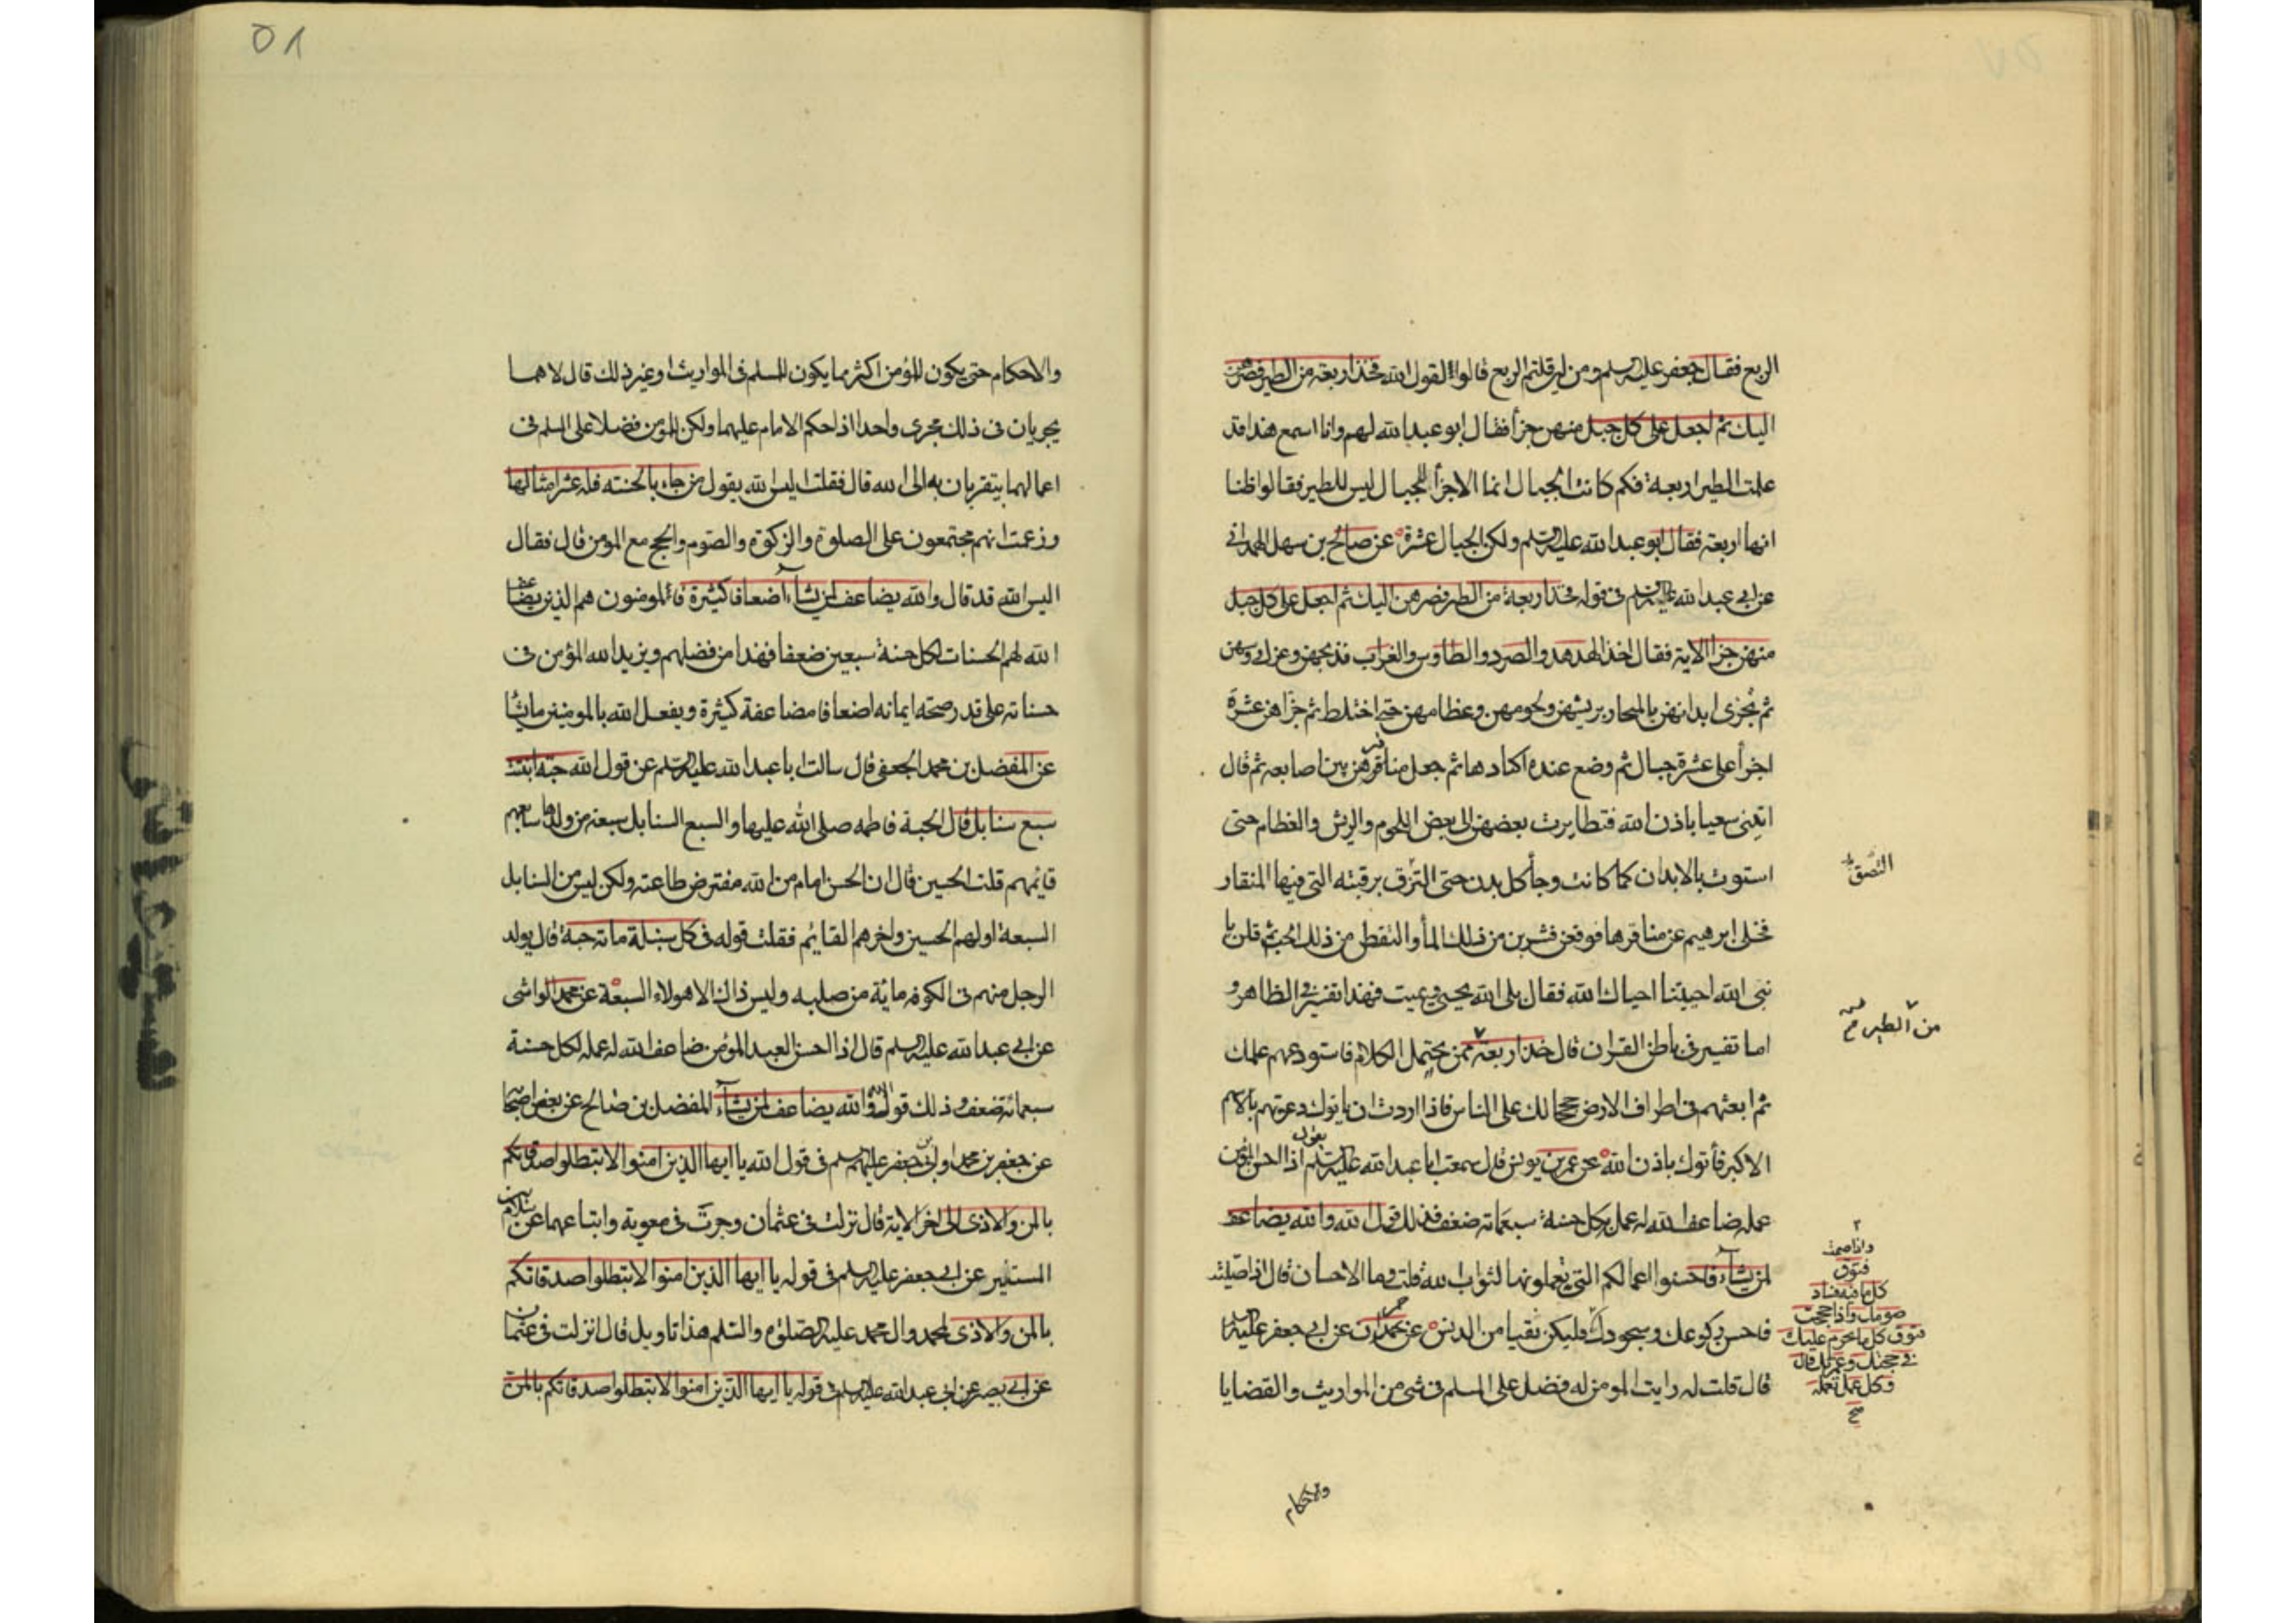 الربع فقال جعفر عليه السلم ومن اين قلتم الربع قالوا لقول الله فخذ اربعة من الطير فصرهن
اليك ثم اجعل على كل جبل منهن جزأ فقال ابو عبد الله لهم وانا اسمع هذا قد
علمت الطير اربعة فكم كانت الجبال انما الاجزأ للجبال ليس للطير فقالوا ظننا
انها اربعة فقال ابو عبد الله عليه السلم ولكن الجبال عشرة عن صالح بن سهل الهمداني
عن ابي عبد الله عليه السلم في قوله فخذ اربعة من الطير فصرهن اليك ثم اجعل على كل جبل
منهن جزا الاية فقال اخذ الهدهد والصرد والطاوس والغراب فذبحهن وعزل رؤسهن
ثم نجزى ابدانهن بالمنحاز بريشهن ولحومهن وعظامهن حتى اختلط ثم جزاهن عشرة
اجزأ على عشرة جبال ثم وضع عنده اكبادها ثم جعل مناقيرهن بين اصابعه ثم قال
اتيني سعيا باذن الله فتطايرت بعضهن الى بعض اللحوم والريش والعظام حتى
استوت بالابدان كما كانت وجأ كل بدن حتى التزق برقبته التي فيها المنقار
فخلى ابرهيم عن مناقرها فوقعن فشربن من ذلك المأ والتقطن من ذلك الحب ثم قلن يا
نبي الله احييتنا احياك الله فقال بلى الله يحيي ويميت فهذا تفسيره في الظاهر و
اما تفسيره في باطن القران قال خذ اربعة ممن يحتمل الكلام فاستودعهم علمك
ثم ابعثهم في اطراف الارض حججا لك على الناس فاذا اردت ان ياتوك دعوتهم بالاسم
الاكبر يأتوك باذن الله عن عمر بن يونس قال سمعت ابا عبد الله عليه السلم يقول اذا احسن المؤمن
عمله ضاعف الله له عمله بكل حسنة سبعمائة ضعف فذلك قول الله والله يضاعف
لمن يشأ فاحسنوا اعمالكم التي تعملونها لثواب الله قلت وما الاحسان قال اذا صليت
فاحسن ركوعك وسجودك وليكن نقيا من الدنس عن حمران عن ابي جعفر عليه السلم
قال قلت له رايت المومن له فضل على المسلم في شئ من المواريث والقضايا
التصق
من الطير
واذا صمت
فتوق
كل ما فيه فساد
صومك واذا حججت
فتوق كل ما يحرم عليك
في حجتك وعمرتك قال
وكل عمل تعمله
صح
والاحكام
٥٨
والاحكام حتى يكون للمؤمن اكثر مما يكون للمسلم في المواريث او غير ذلك قال لا هما
يجريان في ذلك مجرى واحدا اذا حكم الامام عليهما ولكن للمؤمن فضلا على المسلم في
اعمالهما يتقربان به الى الله قال فقلت اليس الله يقول من جاء بالحسنة فله عشر امثالها
وزعمت انهم مجتمعون على الصلوة والزكوة والصوم والحج مع المومن قال فقال
اليس الله قد قال والله يضاعف لمن يشاء اضعافا كثيرة فالمومنون هم الذين يضاعف
الله لهم الحسنات لكل حسنة سبعين ضعفا فهذا من فضلهم ويزيد الله المؤمن في
حسناته على قدر صحة ايمانه اضعافا مضاعفة كثيرة ويفعل الله بالمومنين ما يشا
عن المفضل بن محمد الجعفي قال سالت ابا عبد الله عليه السلم عن قول الله حبة انبتت
سبع سنابل قال الحبة فاطمة صلى الله عليها والسبع السنابل سبعة من ولدها سابعهم
قائمهم قلت الحسن قال ان الحسن امام من الله مفترض طاعته ولكن ليس من السنابل
السبعة اولهم الحسين واخرهم القائم فقلت قوله في كل سنبلة مائة حبة قال يولد
الرجل منهم في الكوفه مائة من صلبه وليس ذاك الا هولاء السبعة عن محمد الواشي
عن ابي عبد الله عليه السلم قال اذا احسن العبد المؤمن ضاعف الله له عمله لكل حسنة
سبعمائة ضعف وذلك قول الله والله يضاعف لمن يشأ المفضل بن صالح عن بعض اصحابه
عن جعفر بن محمد او ابي جعفر عليهم السلم في قول الله يا ايها الذين امنوا لا تبطلوا صدقاتكم
بالمن والاذى الى اخر الاية قال نزلت في عثمان وجرت في معوية واتباعهما عن سلام بن
المستنير عن ابي جعفر عليه السلم في قوله يا ايها الذين امنوا لا تبطلوا صدقاتكم
بالمن والاذى لمحمد وال محمد عليه الصلوة والسلم هذا تاويل قال نزلت في عثمان
عن ابي بصير عن ابي عبد الله عليه السلم في قوله يا ايها الذين امنوا لا تبطلوا صدقاتكم بالمن